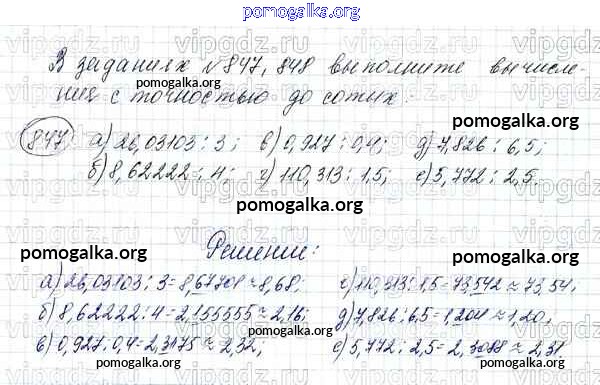 pomogalka.org
В заданиях №847, 848 выполните вычисле-
ния с точностью до сотых.
pomogalka.org
847 а) 26,03103 : 3; в) 0,927 : 0,4; д) 7,826 : 6,5;
б) 8,62222 : 4; г) 110,313 : 1,5; е) 5,772 : 2,5.
pomogalka.org pomogalka.org
Решение:
pomogalka.org pomogalka.org
а) 26,03103 : 3 = 8,67701 ≈ 8,68; г) 110,313 : 1,5 = 73,542 ≈ 73,54;
б) 8,62222 : 4 = 2,155555 ≈ 2,16; д) 7,826 : 6,5 = 1,204 ≈ 1,20;
pomogalka.org
в) 0,927 : 0,4 = 2,3175 ≈ 2,32; е) 5,772 : 2,5 = 2,3088 ≈ 2,31.
pomogalka.org